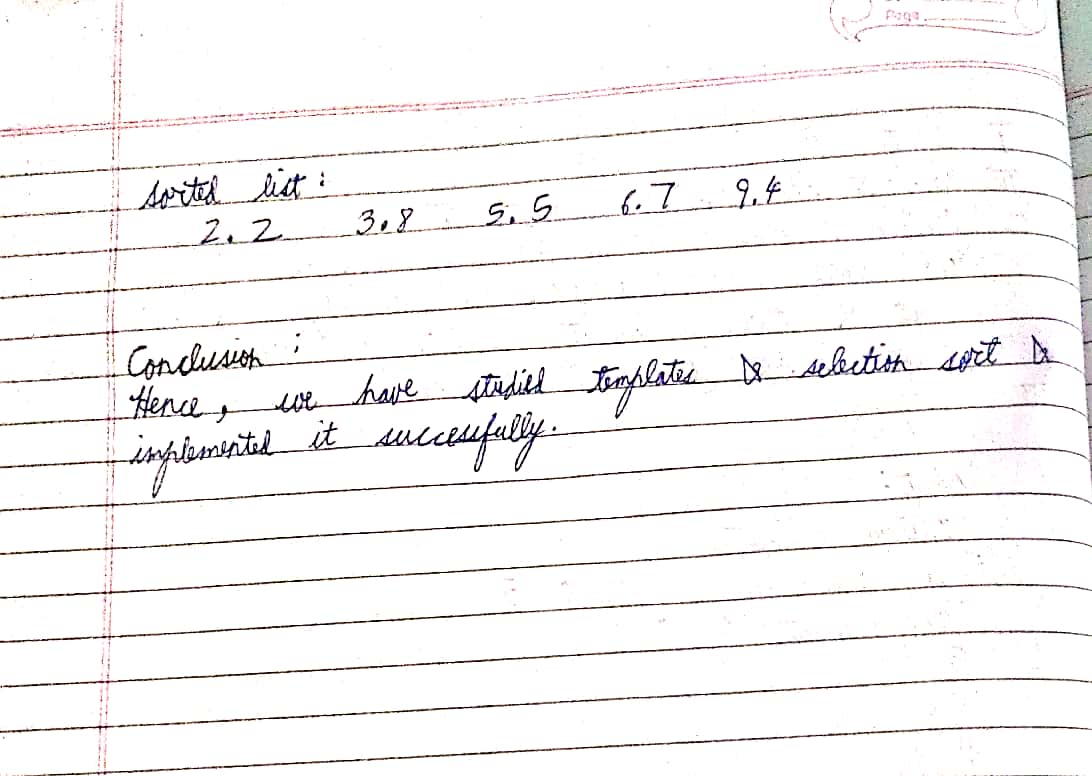 Page
Sorted list :
2.2 3.8 5.5 6.7 9.4
Conclusion :
Hence, we have studied templates & selection sort &
implemented it successfully.